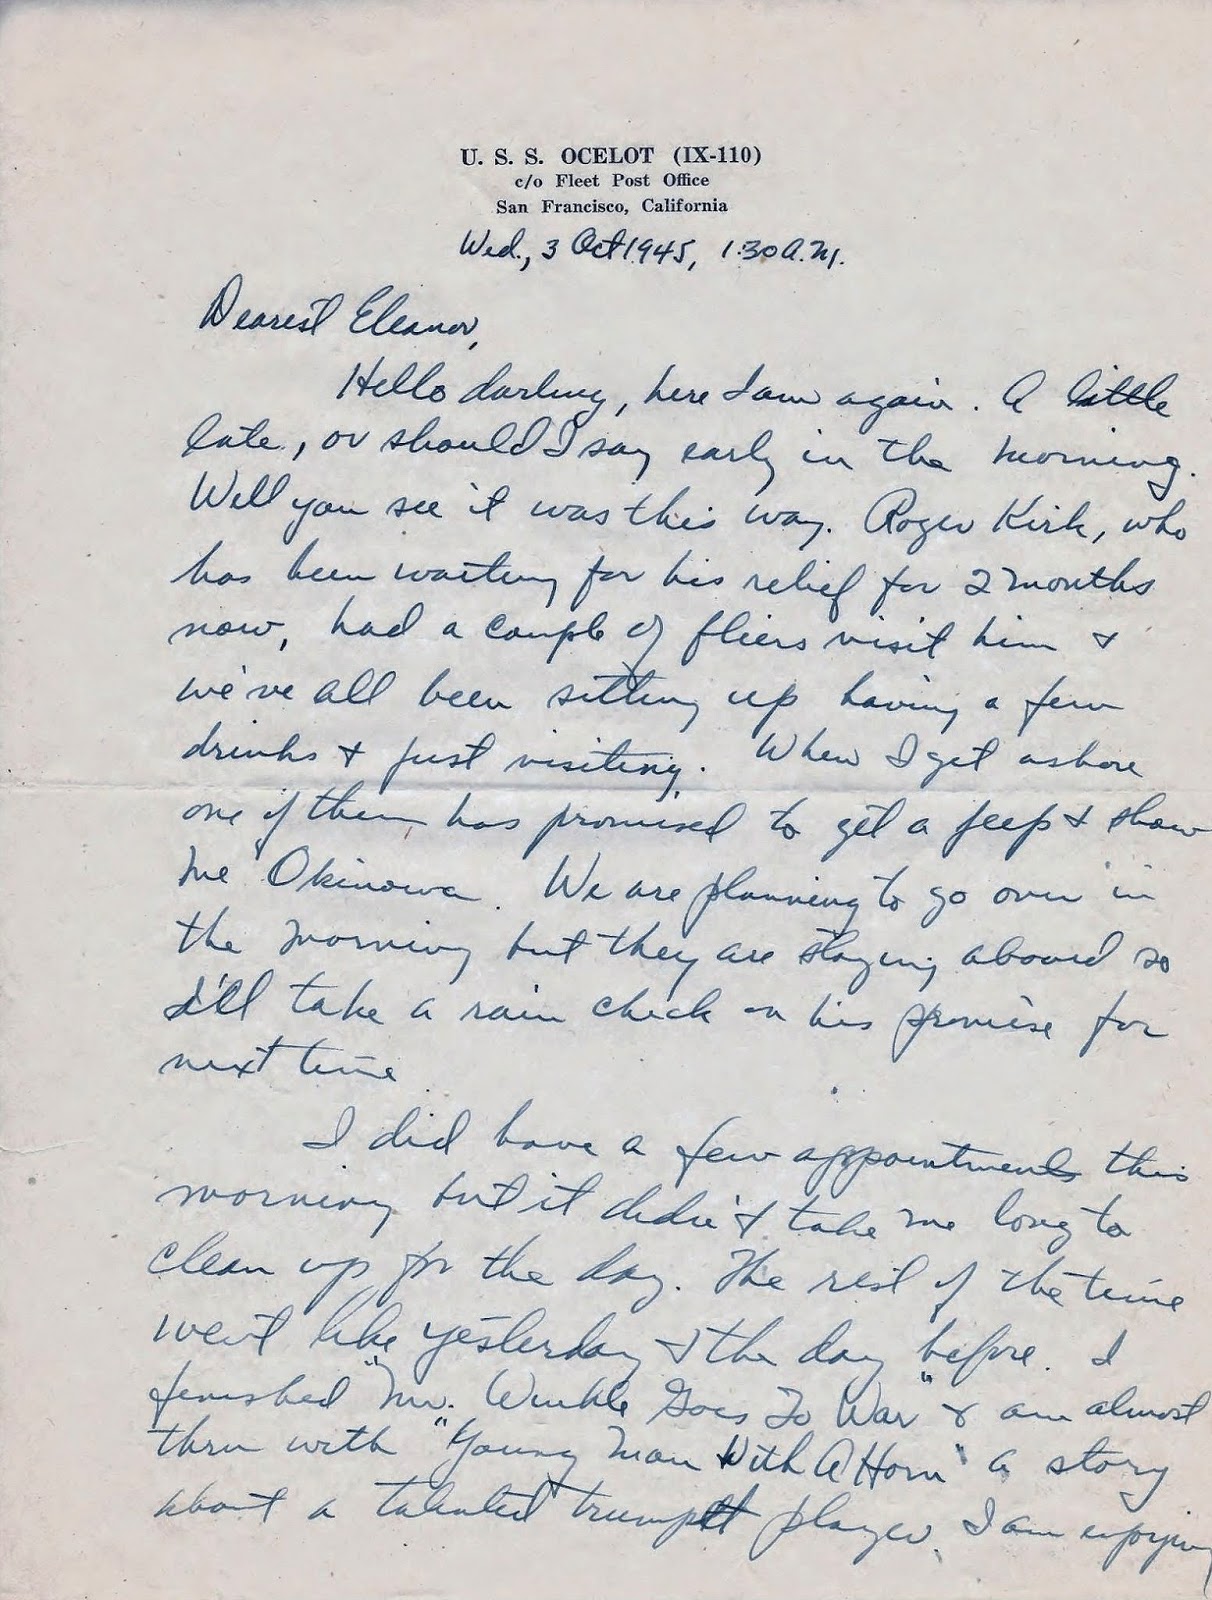 U. S. S. OCELOT (IX-110)
c/o Fleet Post Office
San Francisco, California
Wed., 3 Oct 1945, 1:30 A.M.
Dearest Eleanor,
Hello darling, here I am again. A little
late, or should I say early in the morning.
Well you see it was this way. Roger Kirk, who
has been waiting for his relief for 2 months
now, had a couple of fliers visit him &
we've all been sitting up having a few
drinks & just visiting. When I get ashore
one of them has promised to get a jeep & show
me Okinowa. We are planning to go over in
the morning but they are staying aboard so
I'll take a rain check on his promise for
next time.
I did have a few appointments this
morning but it didn't take me long to
clean up for the day. The rest of the time
went like yesterday & the day before. I
finished "Mr. Winkle Goes To War" & am almost
thru with "Young Man With A Horn" a story
about a talented trumpet player. I am enjoying